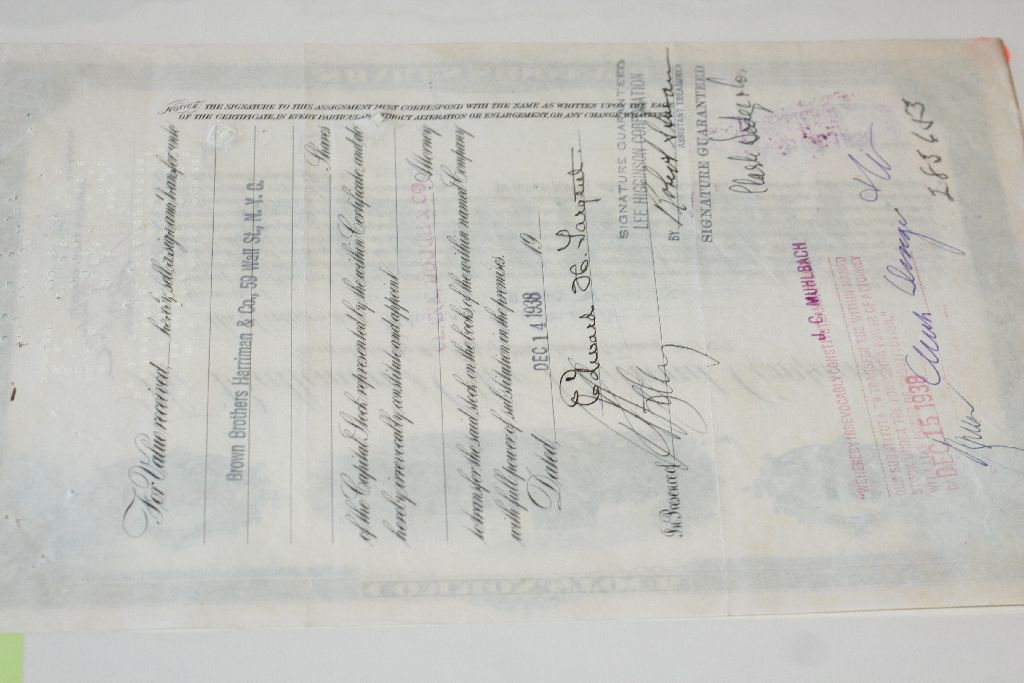 For Value received, hereby sell, assign and transfer unto
Brown Brothers Harriman & Co., 59 Wall St., N. Y. C.
Shares
of the Capital Stock represented by the within Certificate, and do
hereby irrevocably constitute and appoint
CLARK, DODGE & CO. Attorney
to transfer the said stock on the books of the within named Company
with full power of substitution in the premises.
Dated DEC 14 1938 19
Edward H. Sargent.
In Presence of
SIGNATURE GUARANTEED
LEE HIGGINSON CORPORATION
BY Robert
ASSISTANT TREASURER
SIGNATURE GUARANTEED
Clark Dodge & Co.
NOTICE THE SIGNATURE TO THIS ASSIGNMENT MUST CORRESPOND WITH THE NAME AS WRITTEN UPON THE FACE
OF THE CERTIFICATE, IN EVERY PARTICULAR, WITHOUT ALTERATION OR ENLARGEMENT, OR ANY CHANGE WHATEVER.
J. C. MUHLBACH
"WE HEREBY IRREVOCABLY CONSTITUTE AND APPOINT
OUR SUBSTITUTE TO TRANSFER THE WITHIN NAMED
STOCK UNDER THE FOREGOING POWER OF ATTORNEY
WITH LIKE POWER OF SUBSTITUTION"
DATED DEC 15 1938
285653